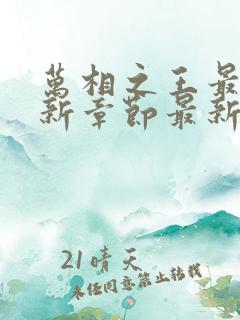 萬相之王最
新章節最新
21晴天
未經同意禁止轉載